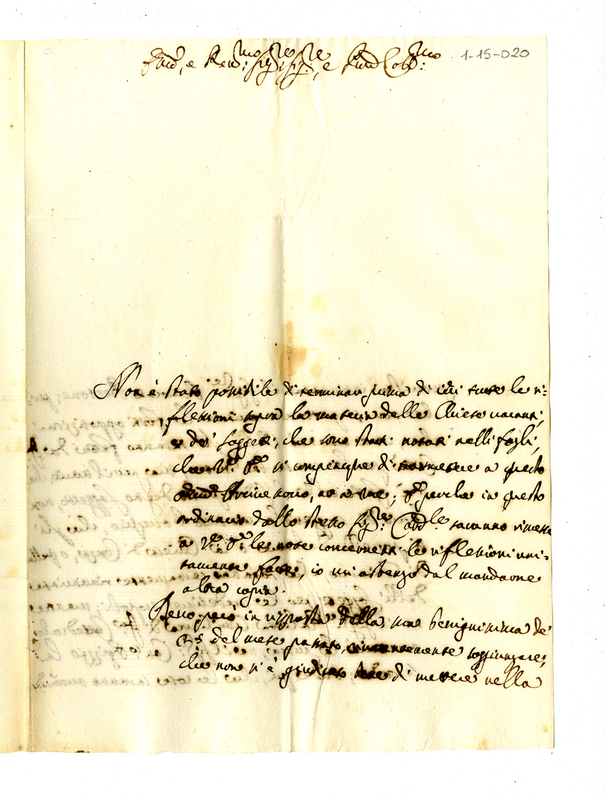 Em̃o, e Rev.mo Sig.re Sig.re, e P̃ne Col.mo
1-15-020
Non è stato possibile di terminar prima di ieri tutte le ri-
flessioni sopra la materia delle Chiese vacanti,
e de' soggetti, che sono stati notati nelli fogli
che V. Em. si compiacque di trasmettere a questo
nonzio, ed a me; e perche in questo
ordinario dallo stesso Sig.re Card.le saranno rimesse
a V. Em. le note concernenti le riflessioni uni-
tamente fatte, io mi astengo dal mandarne
altra copia.
Devo però in risposta della sua benignissima de'
25 del mese passato, riverentemente soggiungere,
che non si è giudicato bene di mettere nella